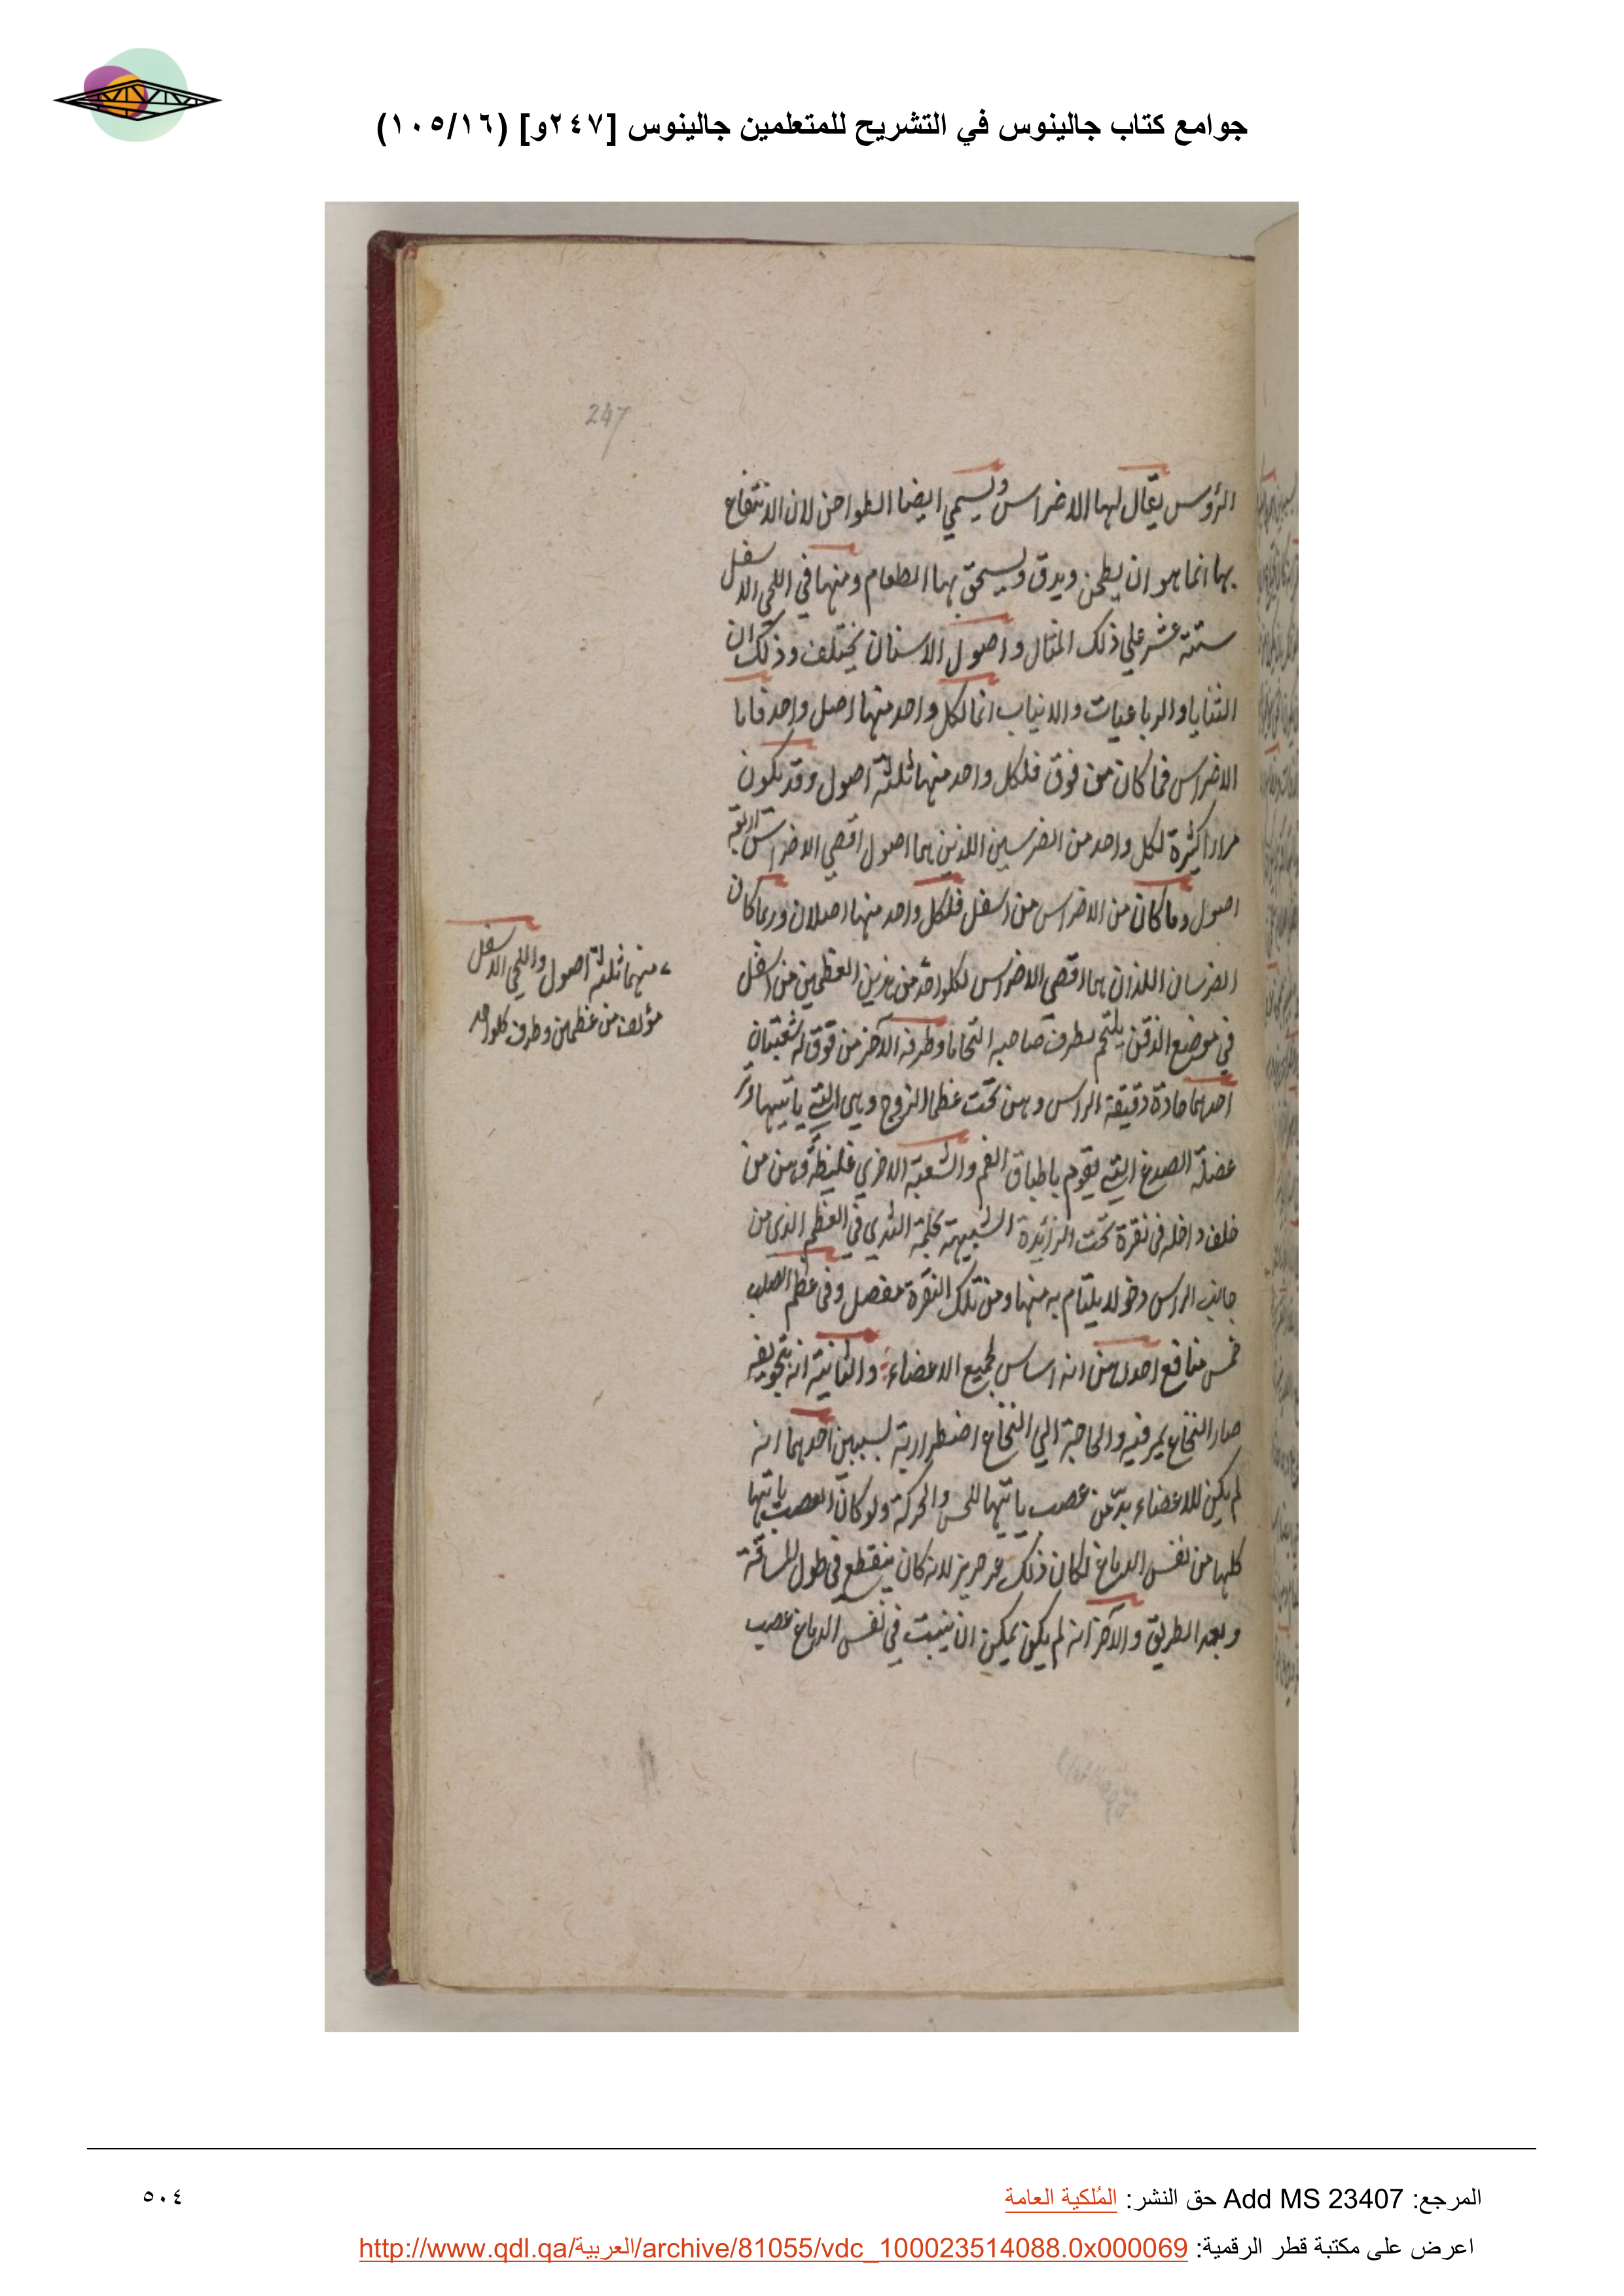 جوامع كتاب جالينوس في التشريح للمتعلمين جالينوس [٢٤٧و] (١٠٥/١٦)
247
الرؤس يقال لها الاضراس ويسمي ايضا الطواحن لان الانتفاع
بها انما هو ان يطحن ويدق ويسحق بها الطعام ومنها في اللحي الاسفل
ستة عشر علي ذلك المثال واصول الاسنان يختلف وذلك ان
الثنايا والرباعيات والانياب انما لكل واحد منها اصل واحد فاما
الاضراس فما كان من فوق فلكل واحد منها ثلثة اصول وقد يكون
مرارا كثيرة لكل واحد من الضرسين اللذين هما اصول اقصي الاضراس اربعة
اصول وما كان من الاضراس من اسفل فلكل واحد منها اصلان وربما كان
الضرسان اللذان هما اقصي الاضراس لكلواحد من هذين العظمين من اسفل
منهما ثلثة اصول واللحي الاسفل
مؤلف من عظمين وطرف كلواحد
في موضع الذقن يلتحم بطرف صاحبه التحاما وطرفه الآخر من فوق له شعبتان
احدهما حادة دقيقة الراس وهن تحت عظم الزوج وهي التي ياتيها وتر
عضلة الصدغ التي يقوم باطباق الفم والشعبة الاخري غليظة وهن من
خلف داخله في نقرة تحت الزائدة الشبيهة بحلمة الثدي في العظم الذي من
جانب الراس دخولا يلتام به منها ومن تلك النقرة مفصل وفي عظم الصلب
خمس منافع احدهن انه اساس لجميع الاعضاء والثانية انه بتجويفه
صار النخاع يمر فيه والحاجة الي النخاع اضطرارية لسببين احدهما انه
لم يكن للاعضاء بد من عصب ياتيها للحس والحركة ولو كان العصب ياتيها
كلها من نفس الدماغ لكان ذلك غير حريز لانه كان ينقطع في طول المسافة
وبعد الطريق والآخر انه لم يكن يمكن ان ينبت في نفس الدماغ عصب
المرجع: Add MS 23407 حق النشر: المُلكية العامة
٥٠٤
اعرض على مكتبة قطر الرقمية: http://www.qdl.qa/العربية/archive/81055/vdc_100023514088.0x000069